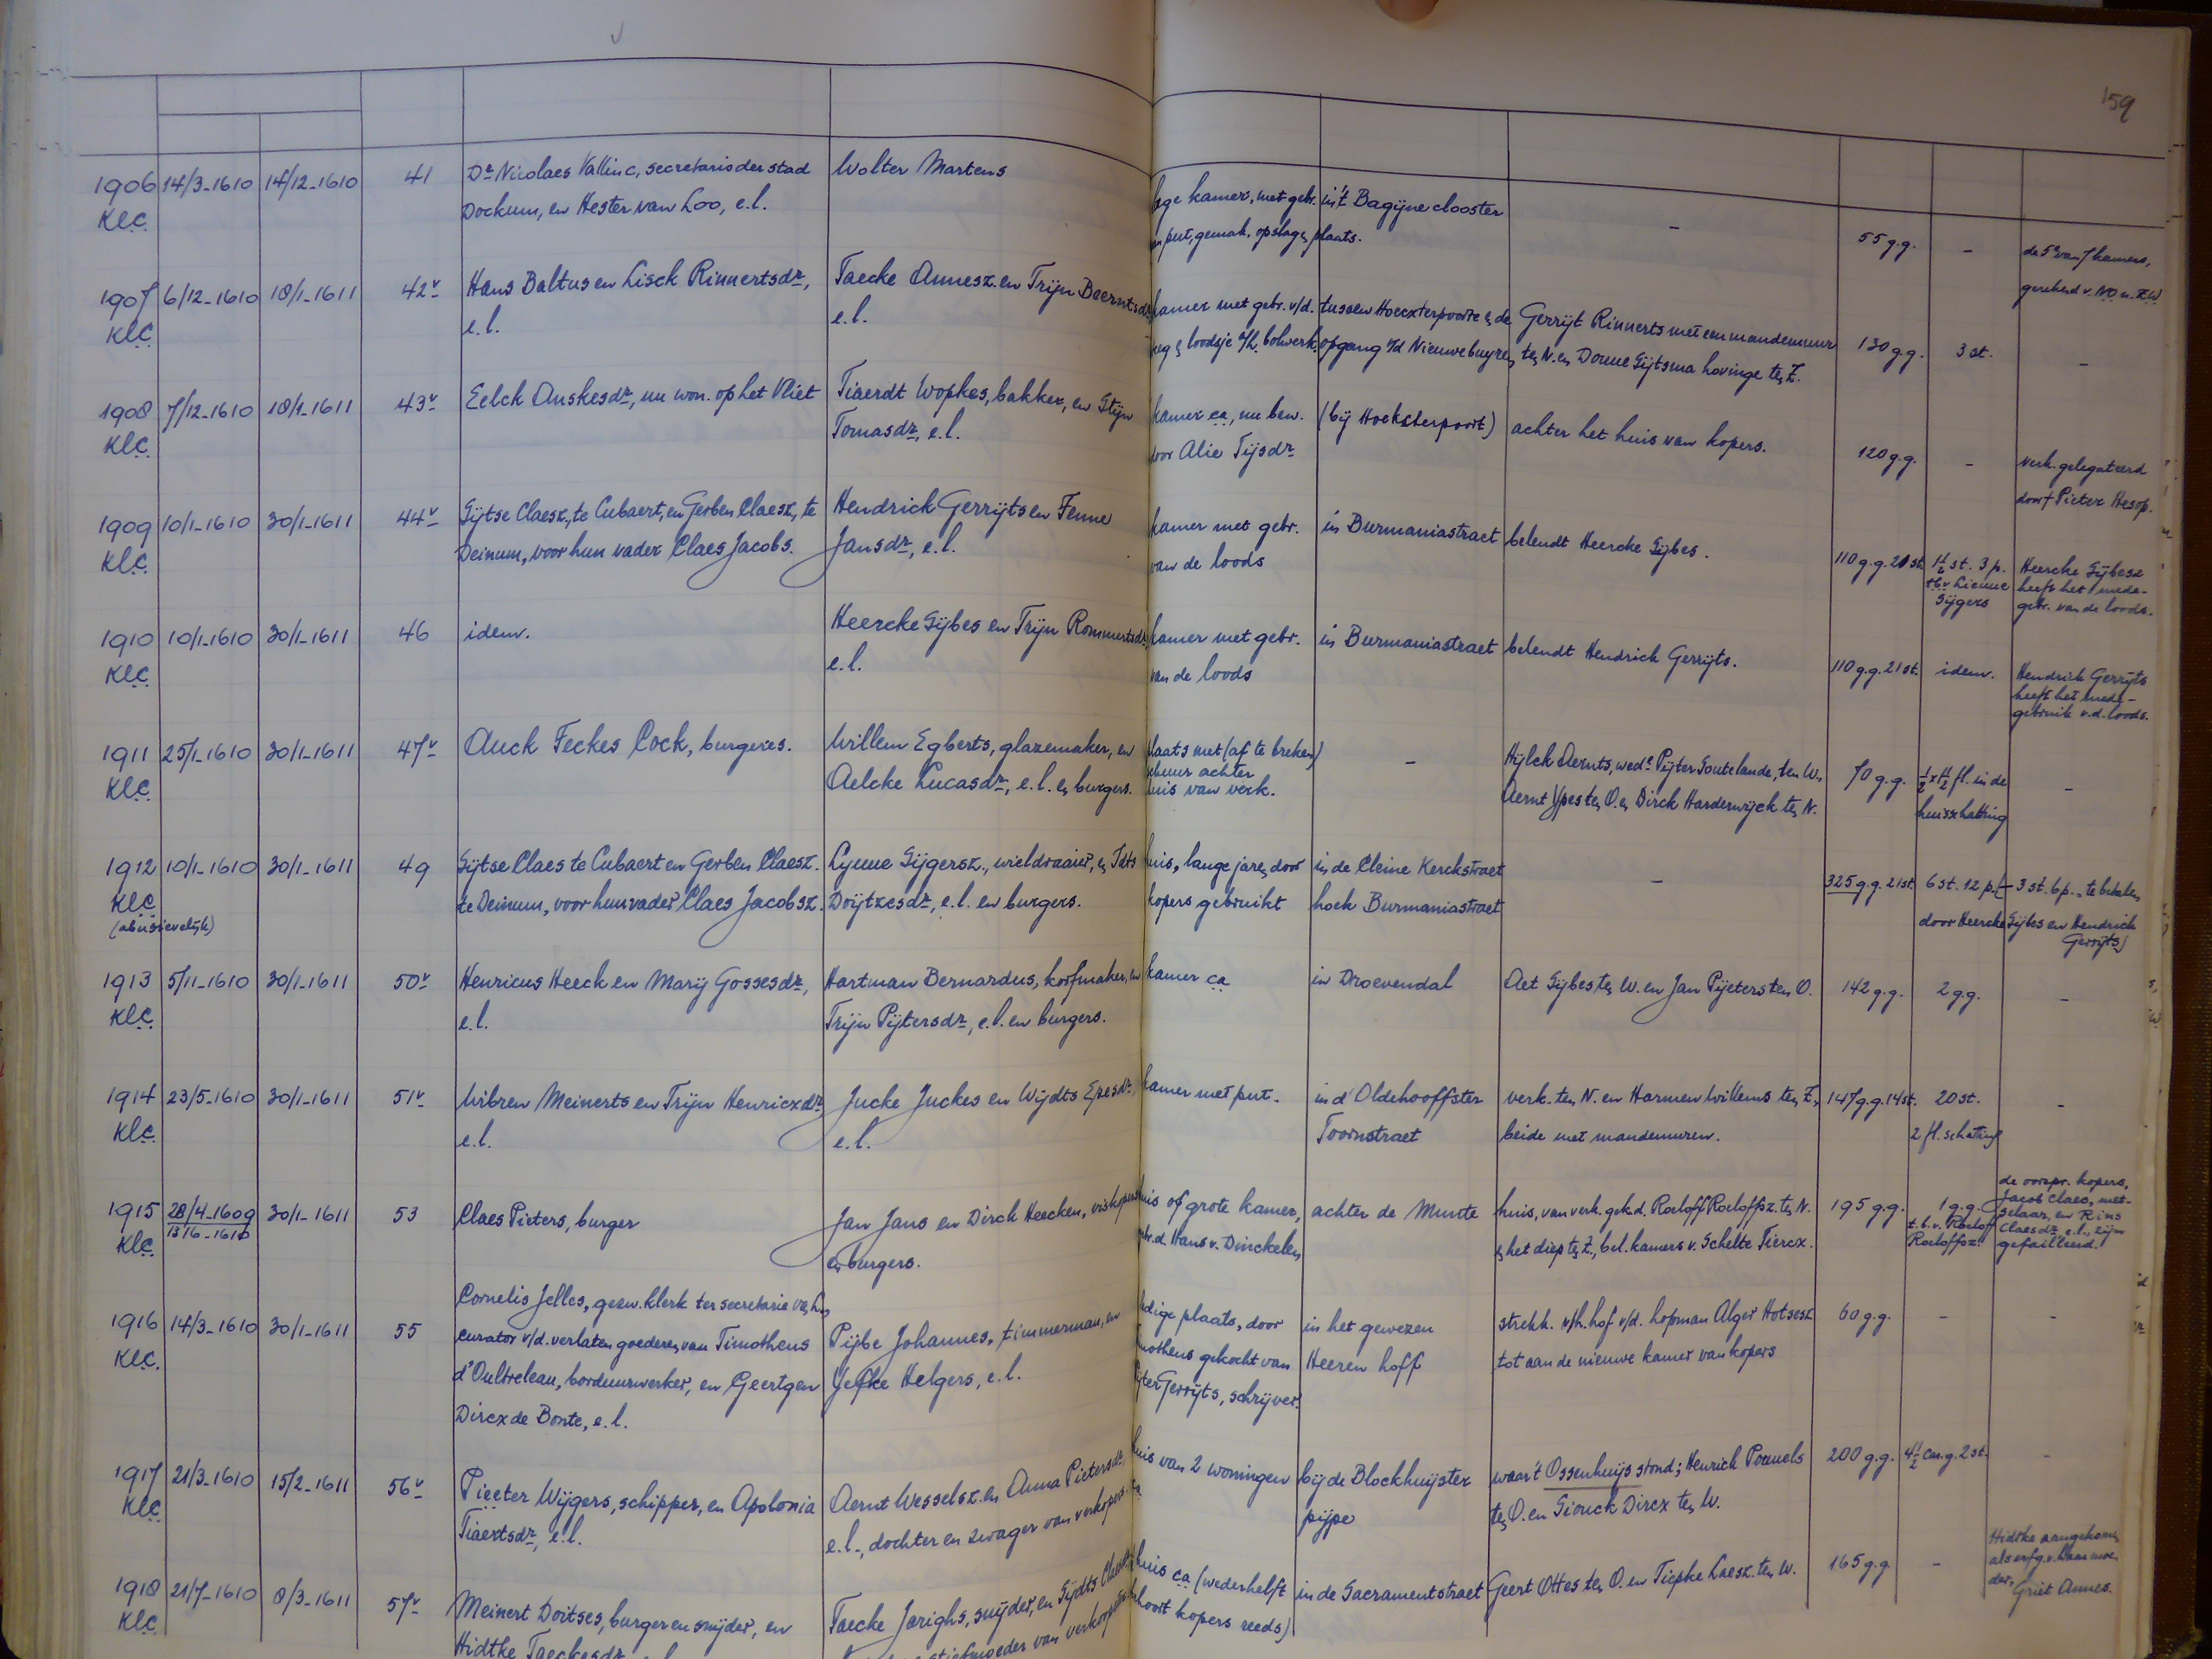 159
1906 14/3-1610 14/12-1610 41 Dr Nicolaes Vallinc, secretaris der stad Wolter Martens
KlC. Dockum, en Hester van Loo, e.l.
lage kamer, met gebr. in 't Bagijne clooster - 55 g.g. - de 5e van 7 kamers,
put, gemak, opslag, plaats. gerekend v. NO n. ZW
1907 6/12-1610 18/1-1611 42v Hans Baltus en Lisck Rinnertsdr, Taecke Annesz. en Trijn Beerntsdr
KlC. e.l. e.l.
kamer met gebr. v/d. tussen Hoecxterpoorte en de Gerrijt Rinnerts met een mandemuur 130 g.g. 3 st. -
weg en loodsje a/h. bolwerk. opgang v/d Nieuwebuyren ten N. en Douue Sijtsma hovinge ten Z.
1908 7/12-1610 18/1-1611 43v Eelck Anskesdr, nu won. op het Vliet Tiaerdt Wopkes, bakker, en Stijn
KlC. Tomasdr, e.l.
kamer ca, nu bew. (bij Hoeksterpoort) achter het huis van kopers. 120 g.g. - verk. gelegateerd
door Alie Tijsdr door Pieter Hesop.
1909 10/1-1610 30/1-1611 44v Sijtse Claesz, te Cubaert, en Gerben Claesz, te Hendrick Gerrijts en Fenne
KlC. Deinum, voor hun vader Claes Jacobs. Jansdr, e.l.
kamer met gebr. in Burmaniastraet belendt Heercke Sijbes. 110 g.g. 21 st. 1½ st. 3 p. Heercke Sijbesz
van de loods t.b.v. Lieuue heeft het mede-
Sijgers gebr. van de loods.
1910 10/1-1610 30/1-1611 46 idem. Heercke Sijbes en Trijn Rommertsdr
KlC. e.l.
kamer met gebr. in Burmaniastraet belendt Hendrick Gerrijts. 110 g.g. 21 st. idem. Hendrick Gerrijts
van de loods heeft het mede-
gebruik v.d. loods.
1911 25/1-1610 30/1-1611 47v Auck Feckes Cock, burgeres. Willem Egberts, glazemaker, en
KlC. Aelcke Lucasdr, e.l. en burgers.
plaats met (af te breken) - Hijlck Aernts, wede Pijter Soutelande, ten W. 70 g.g. ½ x ½ fl. in de -
schuur achter Aernt Ypes ten O. en Dirck Harderwijck ten N. huisschatting
huis van verk.
1912 10/1-1610 30/1-1611 49 Sijtse Claes te Cubaert en Gerben Claesz. Lyuue Sijgersz., wieldraaier, en Idts
KlC. te Deinum, voor hun vader Claes Jacobsz. Doijtzesdr, e.l. en burgers.
(abusievelijk)
huis, lange jaren door in de Cleine Kerckstraet - 325 g.g. 21 st. 6 st. 12 p. (- 3 st. 6 p., te betalen
kopers gebruikt hoek Burmaniastraet door Heercke Sijbes en Hendrick
Gerrijts)
1913 5/11-1610 30/1-1611 50v Henricus Heeck en Marij Gossesdr, Hartman Bernardus, korfmaker, en
KlC. e.l. Trijn Pijtersdr, e.l. en burgers.
kamer ca in Droevendal Aet Sijbes ten W. en Jan Pijeters ten O. 142 g.g. 2 g.g. -
1914 23/5-1610 30/1-1611 51v Wibren Meinerts en Trijn Henricxdr Jucke Juckes en Wijdts Epesdr,
KlC. e.l. e.l.
kamer met put. in d'Oldehooffster verk. ten N. en Harmen Willems ten Z., 147 g.g. 14 st. 20 st. -
Toornstraet beide met mandemuren. 2 fl. schatting
1915 28/4-1609 30/1-1611 53 Claes Pieters, burger Jan Jans en Dirck Heecken, viskopers
KlC. 13/6-1610 en burgers.
huis of grote kamer, achter de Munte huis, van verk. gek. d. Roeloff Roeloffsz. ten N. 195 g.g. 1 g.g. de oorspr. kopers,
gebr. d. Hans v. Dinckelen en het diep ten Z., bel. kamers v. Schelte Tiercx. t.b.v. Roeloff Jacob Claes, met-
Roeloffsz. selaar, en Rins
Claesdr, e.l., zijn
gefailleerd.
1916 14/3-1610 30/1-1611 55 Cornelis Jelles, gesw. klerk ter secretarie
KlC. curator v/d. verlaten goederen van Timotheus Pijbe Johannes, timmerman, en
d'Oultreleau, borduurwerker, en Geertgen Yefke Helgers, e.l.
Dircx de Bonte, e.l.
ledige plaats, door in het gewezen strekk. v/h. hof v/d. hopman Alger Hotsesz 60 g.g. - -
Timotheus gekocht van Heeren hoff tot aan de nieuwe kamer van kopers
Pijter Gerrijts, schrijver.
1917 21/3-1610 15/2-1611 56v Pieeter Wijgers, schipper, en Apolonia Aernt Wesselsz. en Anna Pietersdr,
KlC. Tiaertsdr, e.l. e.l., dochter en zwager van verkopers.
huis van 2 woningen bij de Blockhuijster waar 't Ossenhuijs stond; Henrick Pouuels 200 g.g. 4½ car. g. 2 st. -
ca pijpe ten O. en Siouck Dircx ten W.
1918 21/7-1610 8/3-1611 57v Meinert Doitses, burger en snijder, en Taecke Jarighs, snijder, en Sijdts
KlC. Hidtke Taeckesdr stiefmoeder van verkoopster
huis ca (wederhelft in de Sacramentstraet Geert Ottes ten O. en Tiepke Laesz. ten W. 165 g.g. - Hidtke aangekomen
hoort kopers reeds) als erfg. v. haar moe-
der, Griet Annes.